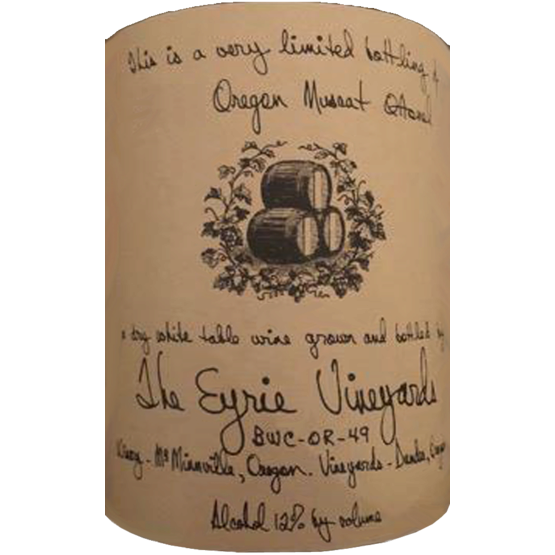 This is a very limited bottling of
Oregon Muscat Ottonel
a dry white table wine grown and bottled by
The Eyrie Vineyards
BWC-OR-49
Winery - McMinnville, Oregon. Vineyards - Dundee, Oregon
Alcohol 12% by volume